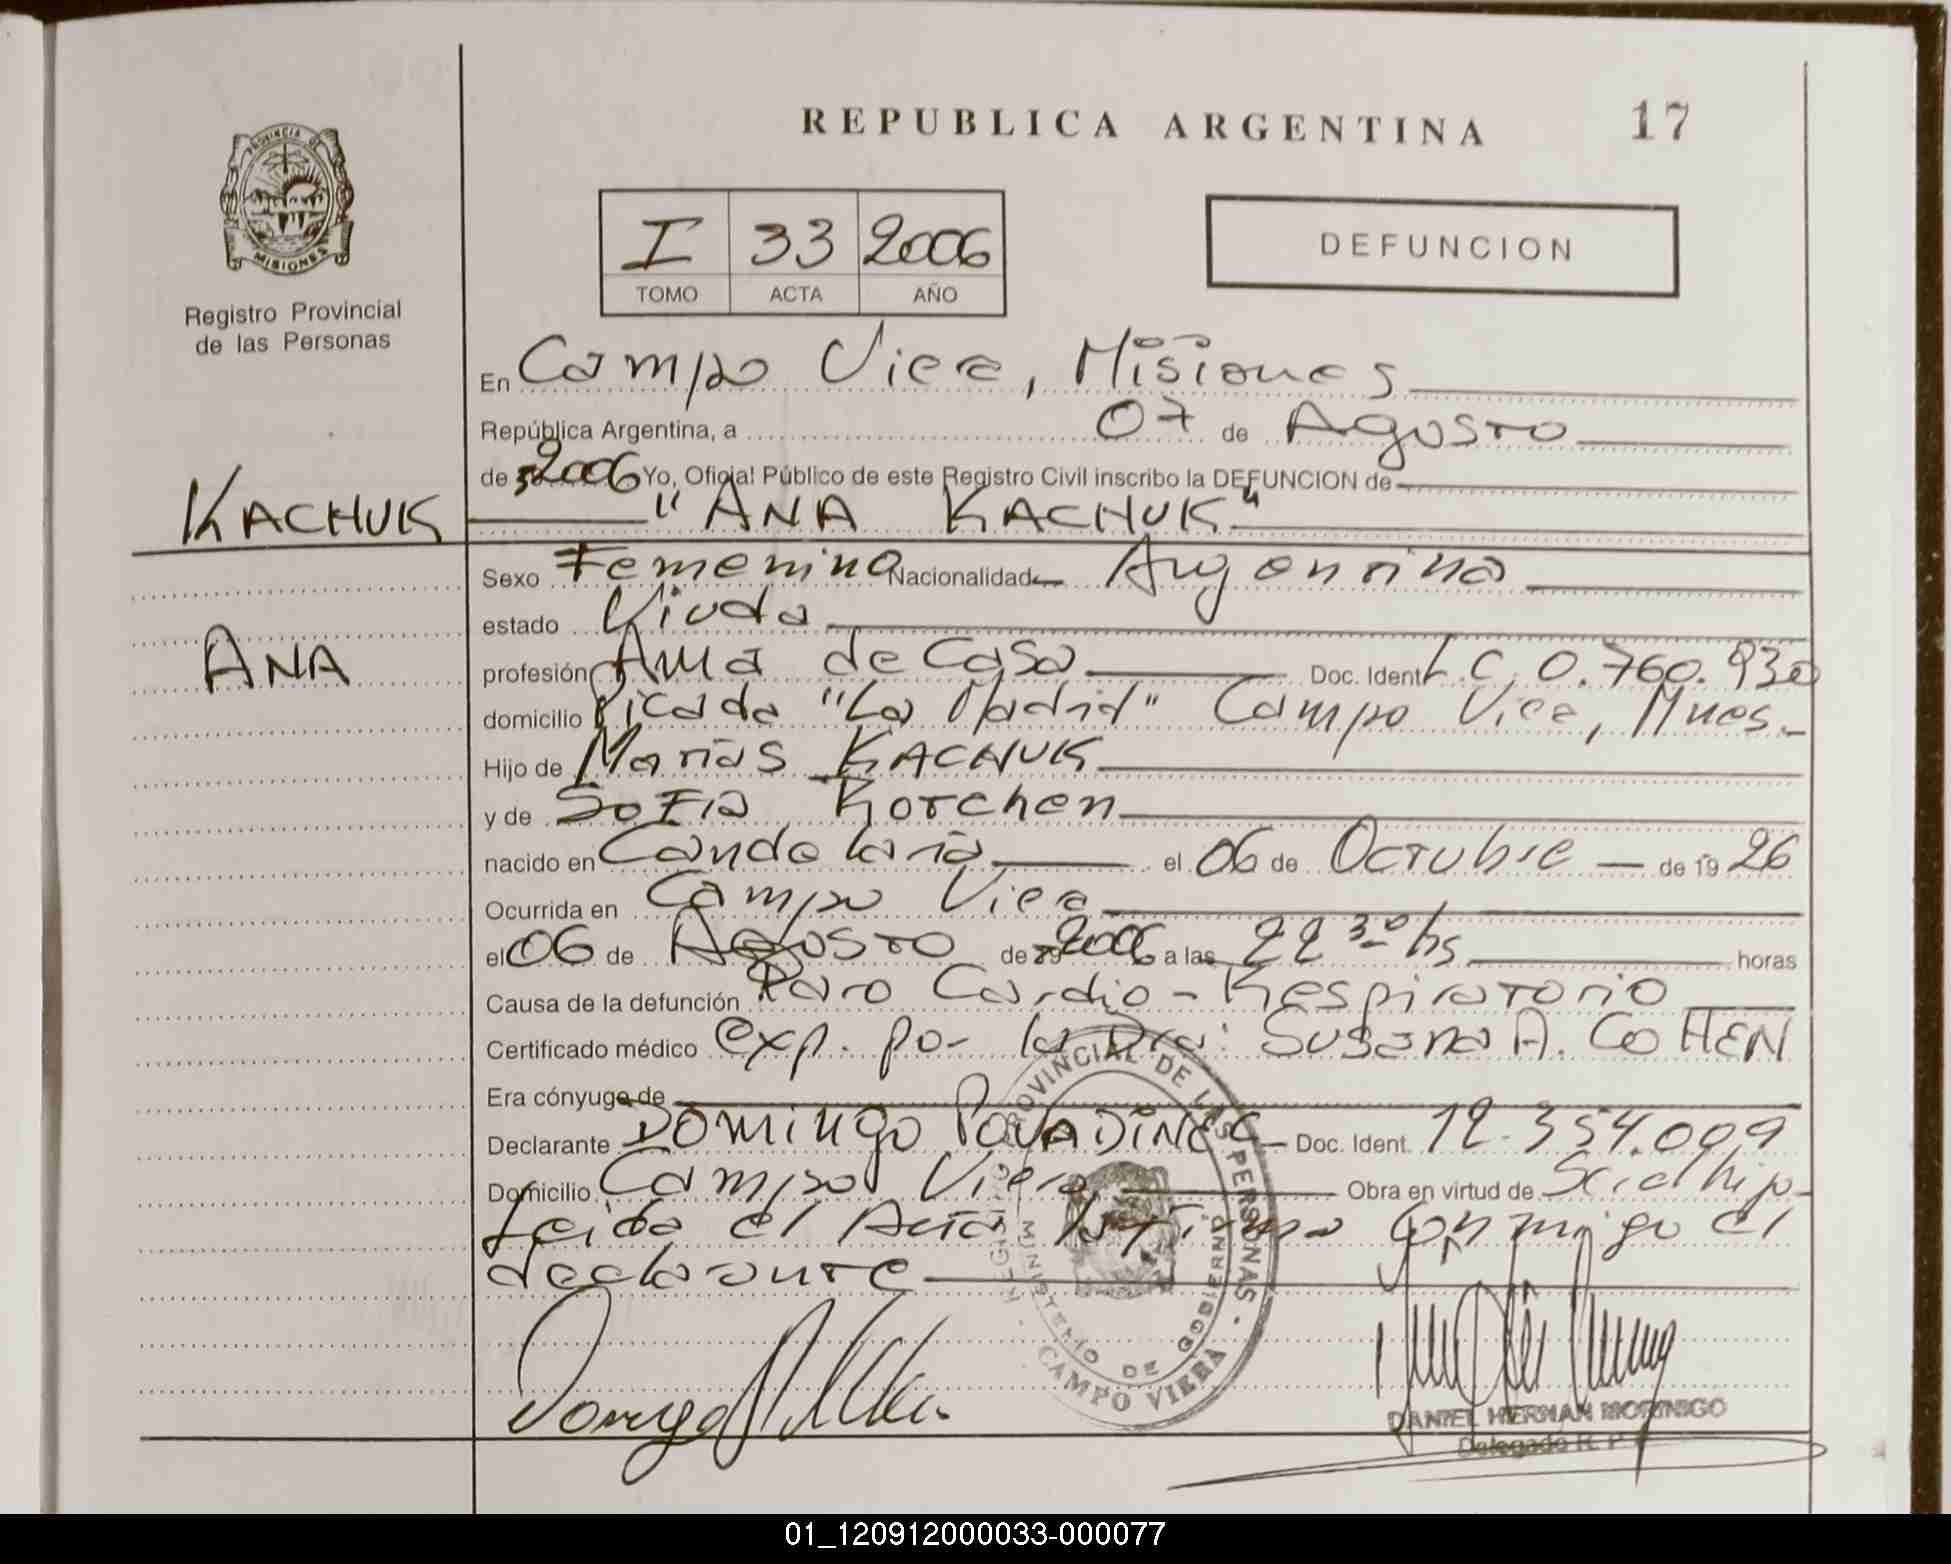 REPUBLICA ARGENTINA 17
PROVINCIA DE
MISIONES
Registro Provincial
de las Personas
I 33 2006
TOMO ACTA AÑO
DEFUNCION
En Campo Viera, Misiones
República Argentina, a 07 de Agosto
de 2006 Yo, Oficial Público de este Registro Civil inscribo la DEFUNCION de
KACHUK "ANA KACHUK"
Sexo Femenina Nacionalidad Argentina
estado Viuda
ANA
profesión Ama de Casa Doc. Ident L.C. 0.760.930
domicilio Picada "La Madrid" Campo Viera, Mnes.
Hijo de Matías KACHUK
y de Sofia Korchen
nacido en Candelaria el 06 de Octubre de 19 26
Ocurrida en Campo Viera
el 06 de Agosto de 2006 a las 22 30 hs horas
Causa de la defunción Paro Cardio-Respiratorio
Certificado médico exp. por la Dra: Susana A. COHEN
Era cónyuge de
Declarante Domingo Doc. Ident. 12.354.009
Domicilio Campo Viera Obra en virtud de hijo
Leida el Acta la firma conmigo el
declarante
PROVINCIAL DE LAS PERSONAS
MINISTERIO DE GOBIERNO
CAMPO VIERA
DANIEL HERNAN MORINIGO
Delegado R. P.
01_120912000033-000077